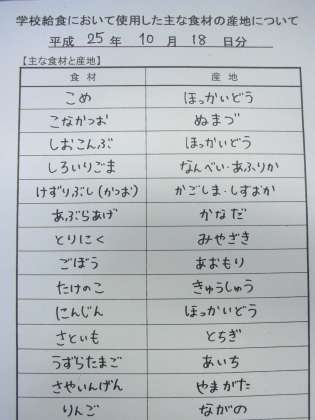 学校給食において使用した主な食材の産地について
平成 25 年 10 月 18 日分
【主な食材と産地】
食材 産地
こめ ほっかいどう
こなかつお ぬまづ
しおこんぶ ほっかいどう
しろいりごま なんべい・あふりか
けずりぶし(かつお) かごしま・しずおか
あぶらあげ かなだ
とりにく みやざき
ごぼう あおもり
たけのこ きゅうしゅう
にんじん ほっかいどう
さといも とちぎ
うずらたまご あいち
さやいんげん やまがた
りんご ながの